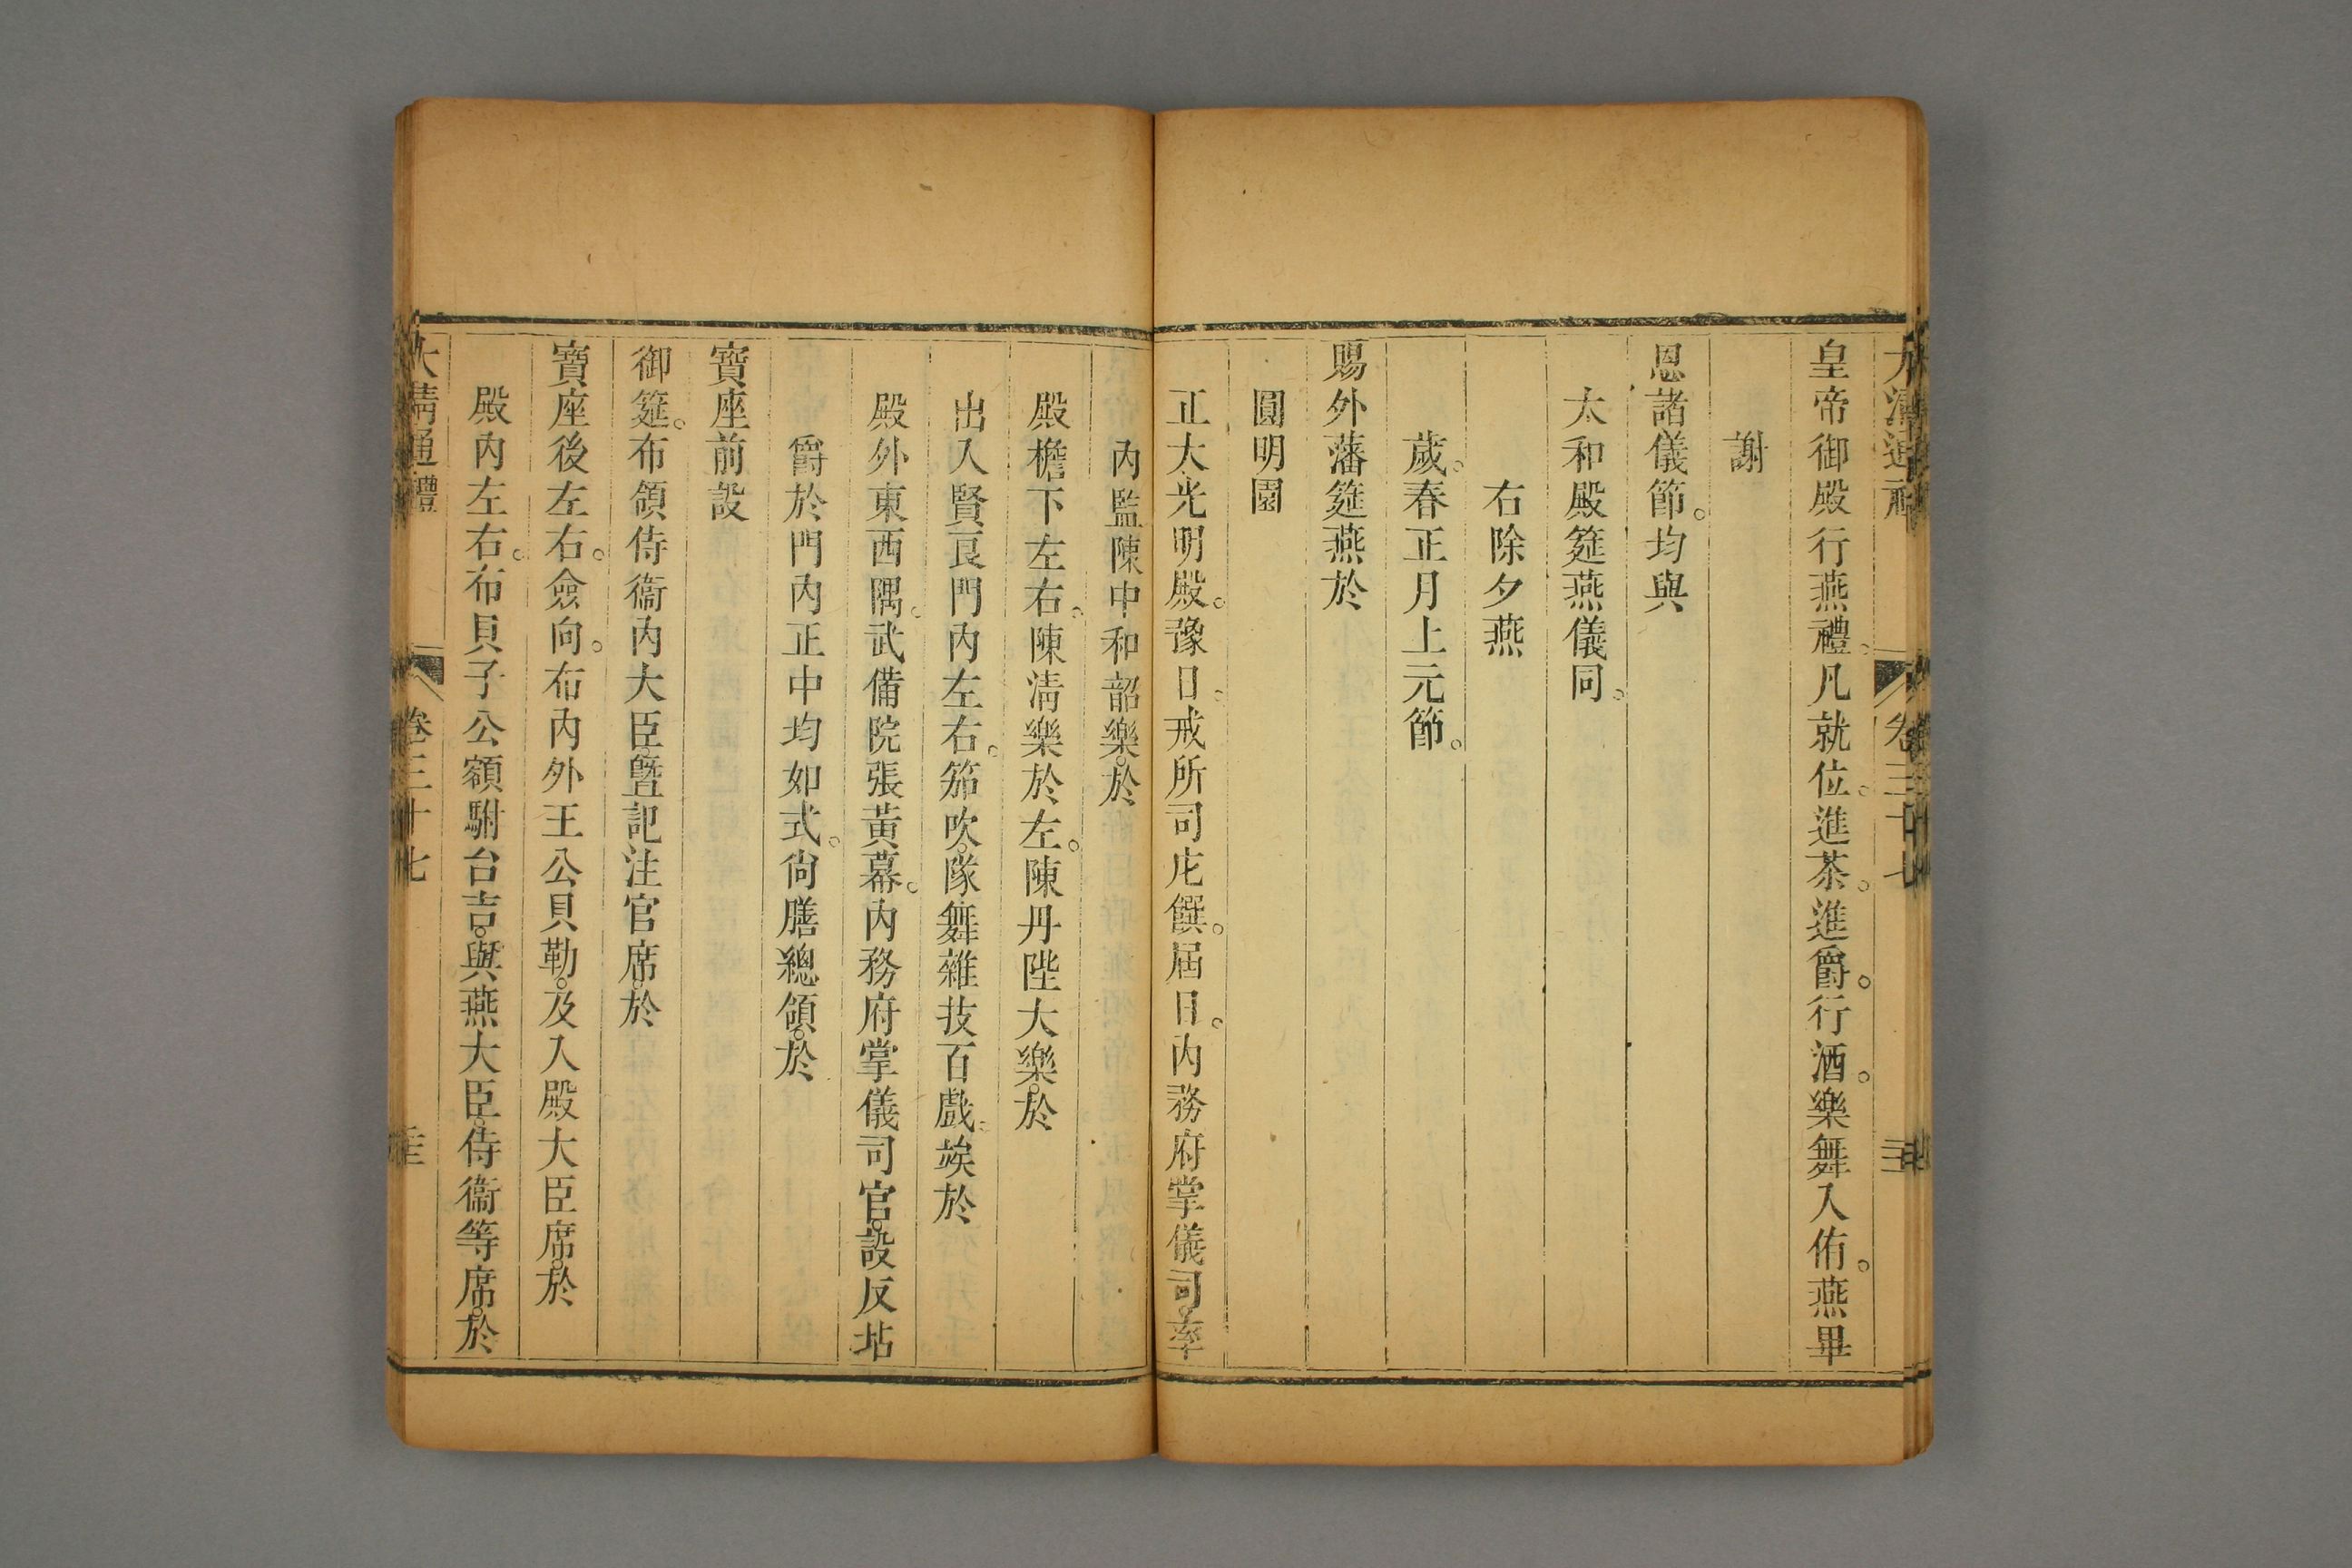 大清通禮 卷三十七
皇帝御殿行燕禮。凡就位。進茶。進爵。行酒。樂舞入侑。燕畢
謝
恩諸儀節。均與
太和殿筵燕儀同。
右除夕燕
歲。春正月上元節。
賜外藩筵燕於
圓明園
正大光明殿。豫日。戒所司庀饌。屆日。內務府掌儀司。率
內監陳中和韶樂。於
殿檐下左右。陳淸樂於左。陳丹陛大樂。於
出入賢良門內左右。笳吹。隊舞雜技百戲。竢於
殿外東西隅。武備院張黃幕。內務府掌儀司官。設反坫
爵於門內正中均如式。尙膳總領。於
寶座前設
御筵。布領侍衞內大臣。曁記注官席。於
寶座後左右。僉向。布內外王公貝勒。及入殿大臣席。於
殿內左右。布貝子公額駙台吉。與燕大臣。侍衞等席。於
大淸通禮 卷三十七